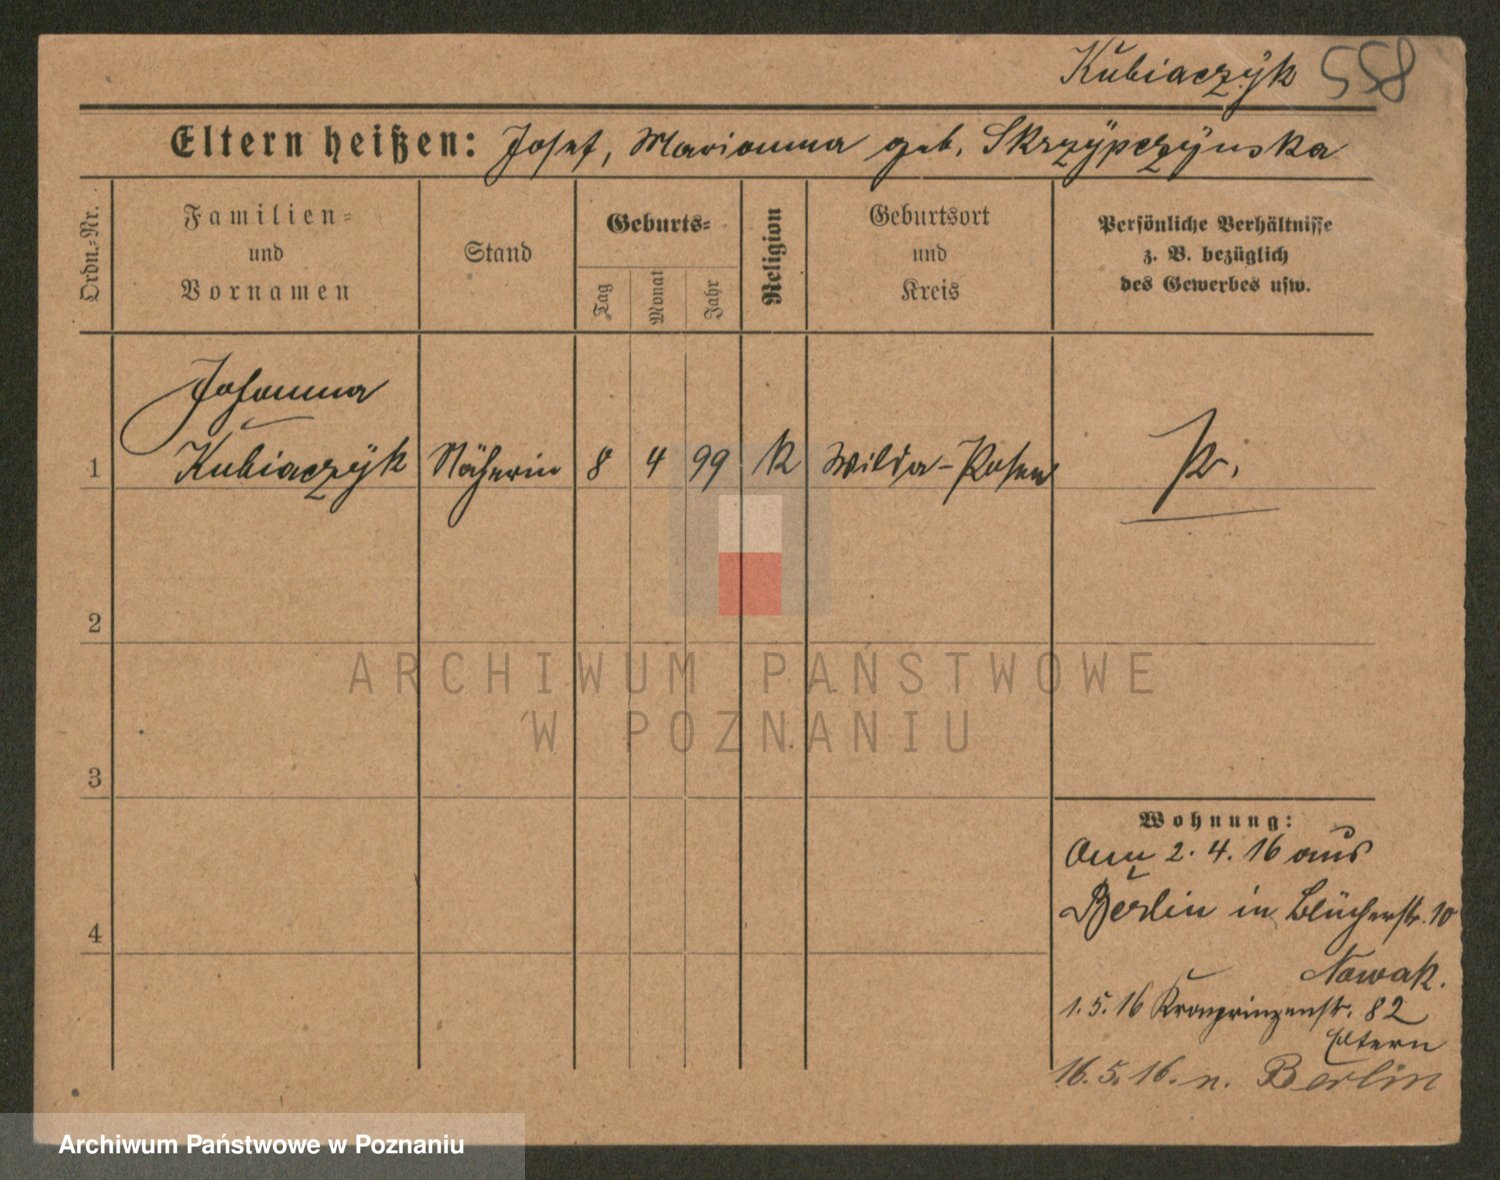 Kubiaczyk 558
Eltern heißen: Josef, Marianna geb. Skrzypczynska
Ordn.-Nr.
Familien-
und
Vornamen
Stand
Geburts-
Tag
Monat
Jahr
Religion
Geburtsort
und
Kreis
Persönliche Verhältnisse
z. B. bezüglich
des Gewerbes usw.
Johanna
1 Kubiaczyk Näherin 8 4 99 K Wilda-Posen Pr.
2
3
4
Wohnung:
2. 4. 16 aus
Berlin in Blücherstr. 10
Nowak.
1. 5. 16 Kronprinzenstr. 82
Eltern
16. 5. 16. n. Berlin
ARCHIWUM PAŃSTWOWE
W POZNANIU
Archiwum Państwowe w Poznaniu